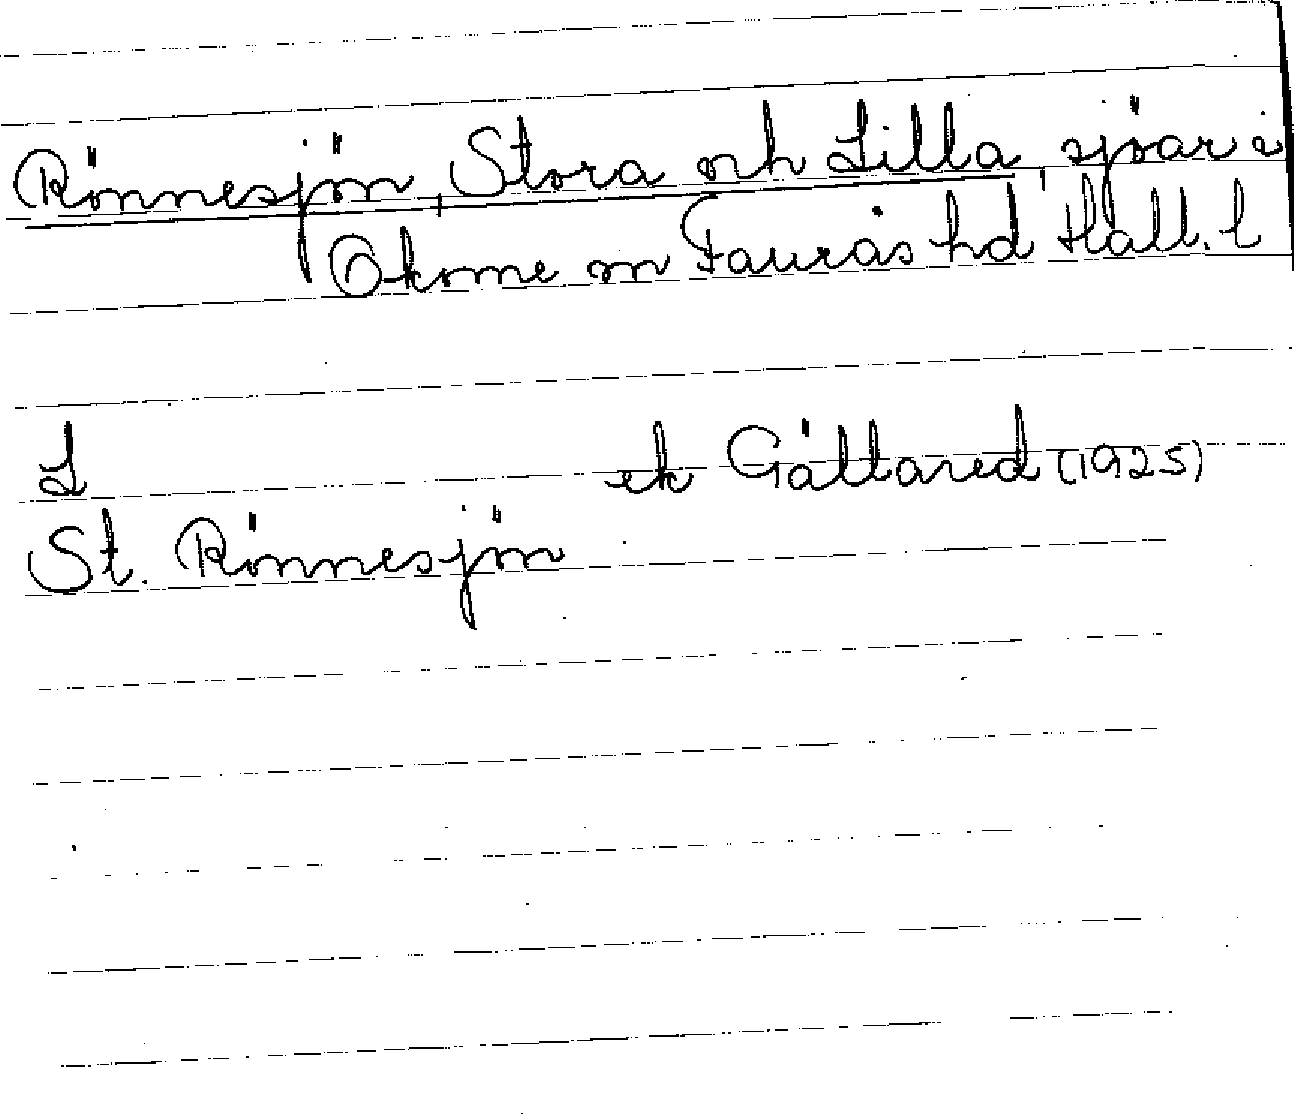 Rönnesjön, Stora och Lilla sjöar i
Okome sn Faurås hd Hall. l
L ek Gällared (1925)
St. Rönnesjön